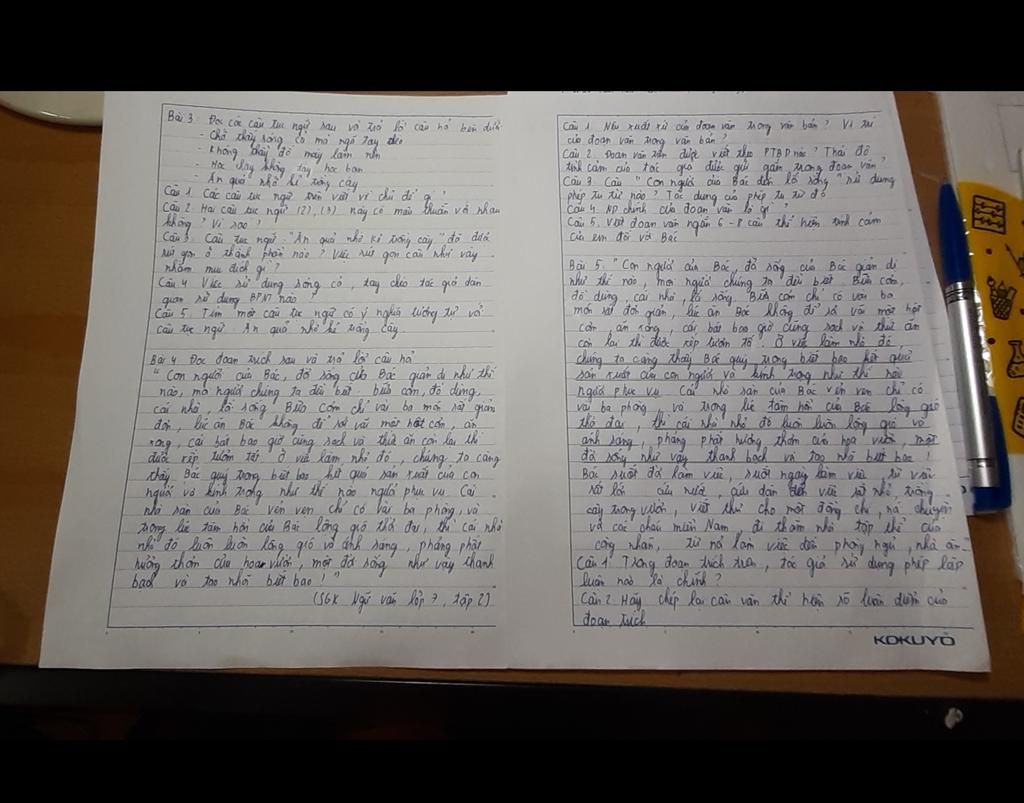 Bài 3: Đọc các câu tục ngữ sau và trả lời câu hỏi bên dưới
- Chớ thấy sóng cả mà ngã tay chèo
- Không thầy đố mày làm nên
- Học thầy không tày học bạn
- Ăn quả nhớ kẻ trồng cây
Câu 1. Các câu tục ngữ trên viết về chủ đề gì?
Câu 2. Hai câu tục ngữ (2), (3) này có mâu thuẫn với nhau
không? Vì sao?
Câu 3. Câu tục ngữ: "Ăn quả nhớ kẻ trồng cây" đã được
rút gọn ở thành phần nào? Việc rút gọn câu như vậy
nhằm mục đích gì?
Câu 4 Việc sử dụng sóng cả, tay chèo tác giả dân
gian sử dụng BPNT nào
Câu 5. Tìm một câu tục ngữ có ý nghĩa tương tự với
câu tục ngữ: Ăn quả nhớ kẻ trồng cây.
Bài 4 Đọc đoạn trích sau và trả lời câu hỏi
"Con người của Bác, đời sống của Bác giản dị như thế
nào, mọi người chúng ta đều biết: bữa cơm, đồ dùng,
cái nhà, lối sống. Bữa cơm chỉ vài ba món rất giản
đơn, lúc ăn Bác không để rơi vãi một hột cơm, ăn
xong, cái bát bao giờ cũng sạch và thức ăn còn lại thì
được xếp tươm tất. Ở việc làm nhỏ đó, chúng ta càng
thấy Bác quý trọng biết bao kết quả sản xuất của con
người và kính trọng như thế nào người phục vụ. Cái
nhà sàn của Bác vẻn vẹn chỉ có vài ba phòng, và
trong lúc tâm hồn của Bác lộng gió thời đại, thì cái nhà
nhỏ đó luôn luôn lộng gió và ánh sáng, phảng phất
hương thơm của hoa vườn, một đời sống như vậy thanh
bạch và tao nhã biết bao!"
(SGK Ngữ văn lớp 7, tập 2)
Câu 1. Nêu xuất xứ của đoạn văn trong văn bản? Vị trí
của đoạn văn trong văn bản?
Câu 2. Đoạn văn trên được viết theo PTBĐ nào? Thái độ
tình cảm của tác giả được gửi gắm trong đoạn văn?
Câu 3. Câu "Con người của Bác đến lối sống" sử dụng
phép tu từ nào? Tác dụng của phép tu từ đó
Câu 4. ND chính của đoạn văn là gì?
Câu 5. Viết đoạn văn ngắn 6-8 câu thể hiện tình cảm
của em đối với Bác
Bài 5. "Con người của Bác, đời sống của Bác giản dị
như thế nào, mọi người chúng ta đều biết: Bữa cơm,
đồ dùng, cái nhà, lối sống. Bữa cơm chỉ có vài ba
món rất đơn giản, lúc ăn Bác không để rơi vãi một hột
cơm, ăn xong, cái bát bao giờ cũng sạch và thức ăn
còn lại thì được xếp tươm tất. Ở việc làm nhỏ đó,
chúng ta càng thấy Bác quý trọng biết bao kết quả
sản xuất của con người và kính trọng như thế nào
người phục vụ. Cái nhà sàn của Bác vẻn vẹn chỉ có
vài ba phòng, và trong lúc tâm hồn của Bác lộng gió
thời đại, thì cái nhà nhỏ đó luôn luôn lộng gió và
ánh sáng, phảng phất hương thơm của hoa vườn, một
đời sống như vậy thanh bạch và tao nhã biết bao!
Bác suốt đời làm việc, suốt ngày làm việc, từ việc
rất lớn cứu nước, cứu dân đến việc rất nhỏ, trồng
cây trong vườn, viết thư cho một đồng chí, nói chuyện
với các cháu miền Nam, đi thăm nhà tập thể của
công nhân, từ nơi làm việc đến phòng ngủ, nhà ăn"
Câu 1. Trong đoạn trích trên, tác giả sử dụng phép lập
luận nào là chính?
Câu 2. Hãy chép lại câu văn thể hiện rõ luận điểm của
đoạn trích
KOKUYO